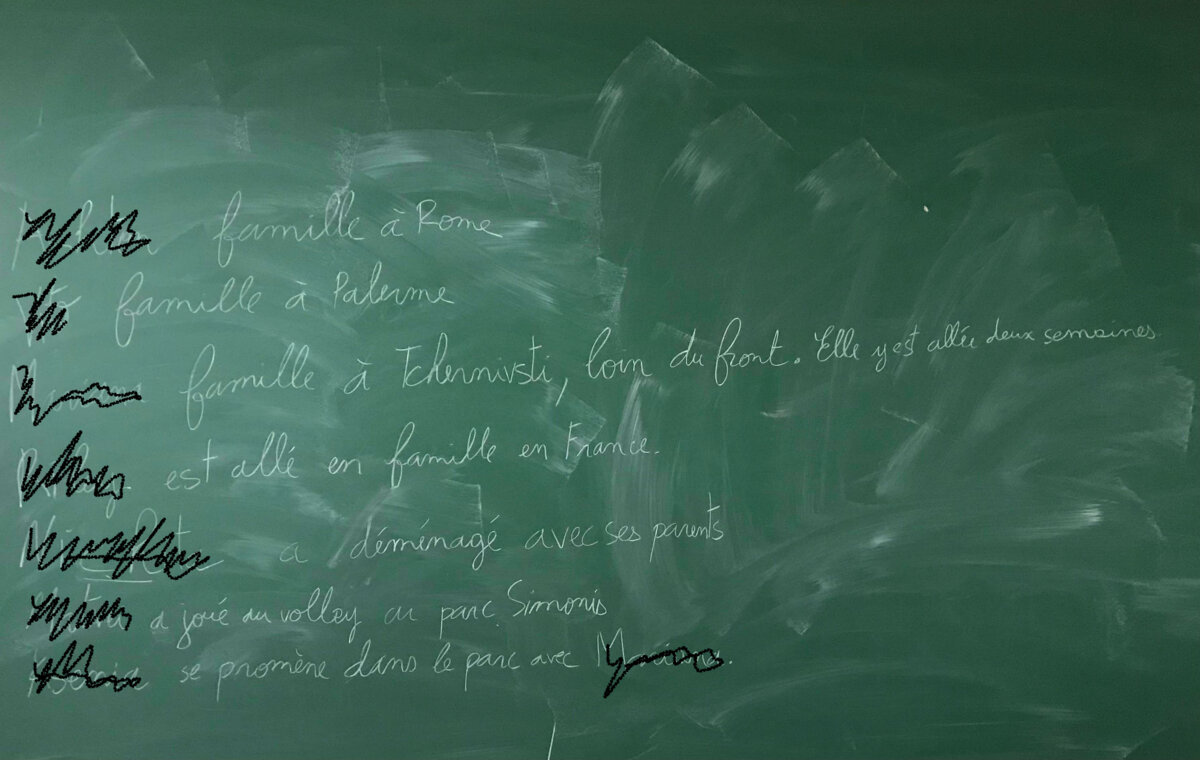 famille à Rome
famille à Palerme
famille à Tchernivsti, loin du front. Elle y est allée deux semaines.
est allé en famille en France.
a déménagé avec ses parents
a joué au volley au parc Simonis
se promène dans le parc avec